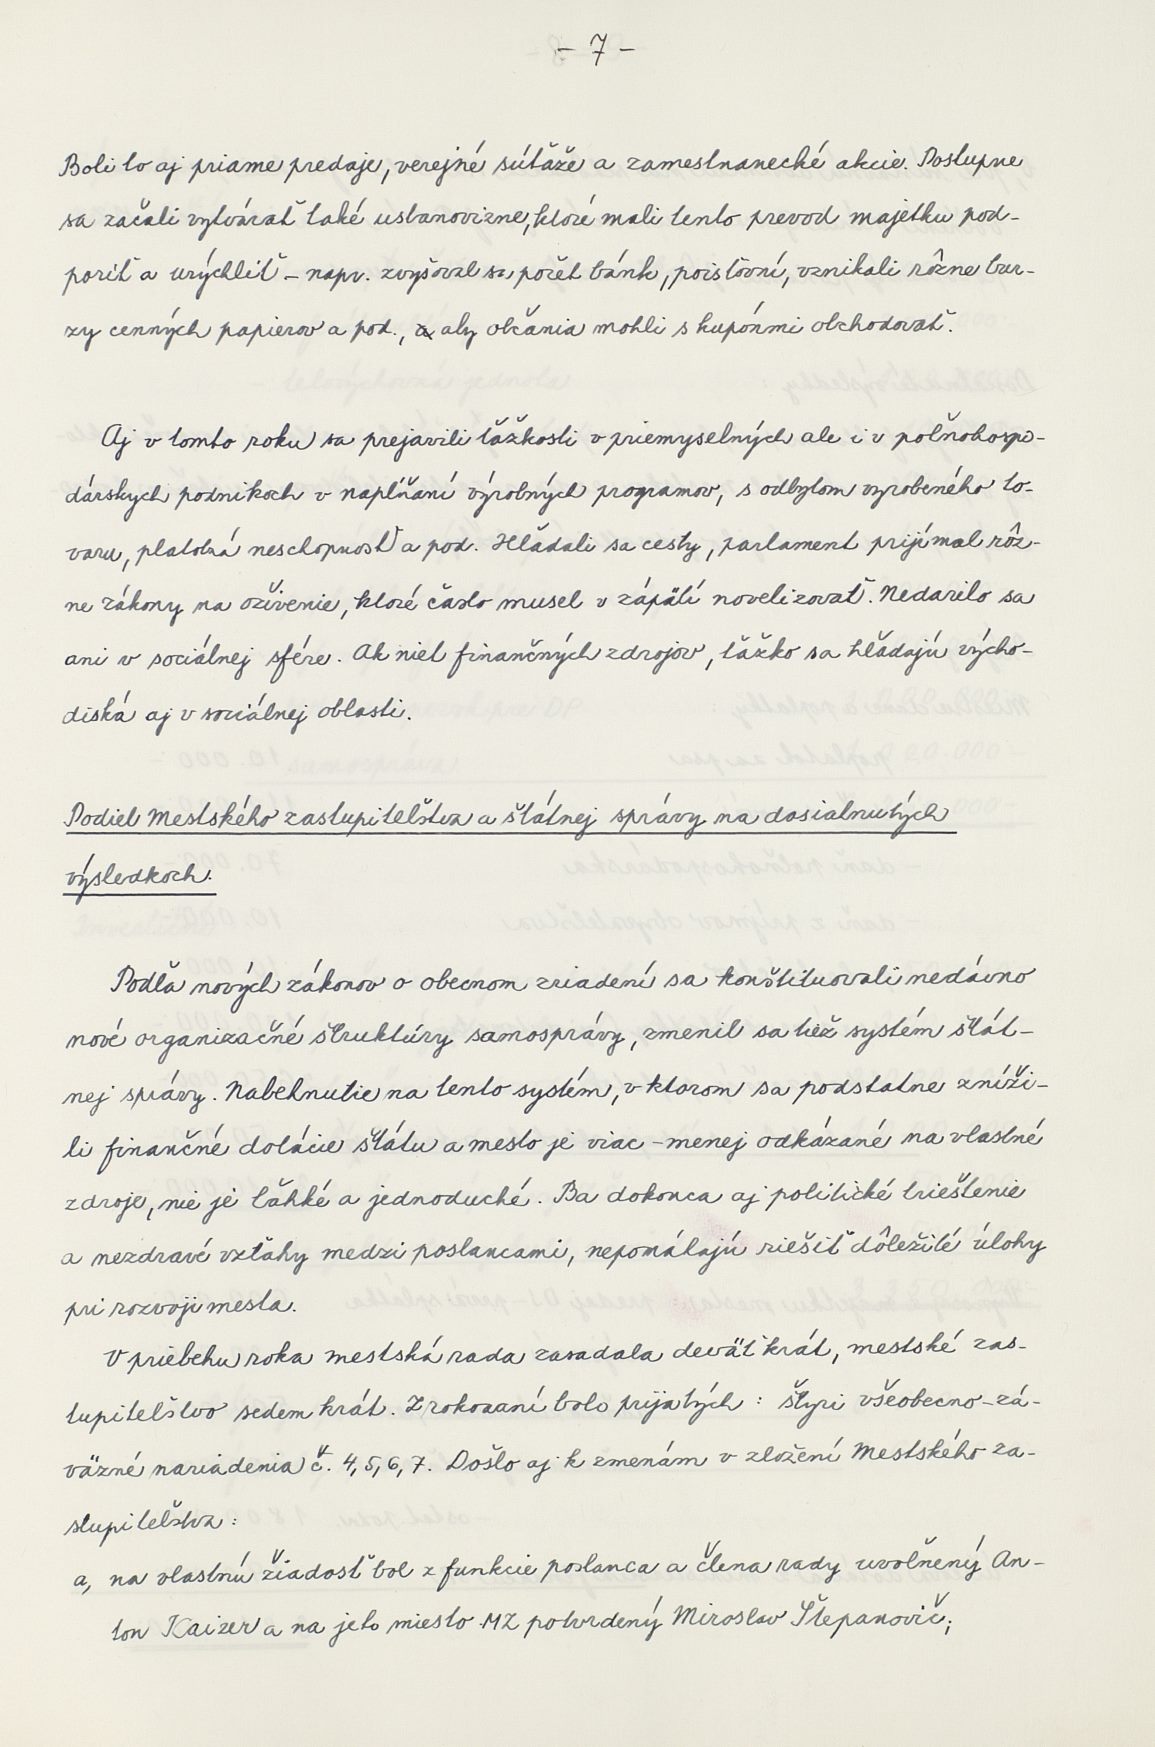 - 7 -
Boli to aj priame predaje, verejné súťaže a zamestnanecké akcie. Postupne
sa začali vytvárať také ustanovizne, ktoré mali tento prevod majetku pod-
poriť a urýchliť - napr. zvyšoval sa počet bánk, poisťovní, vznikali rôzne bur-
zy cenných papierov a pod., aby občania mohli s kupónmi obchodovať.
Aj v tomto roku sa prejavili ťažkosti v priemyselných ale i v poľnohospo-
dárskych podnikoch v napĺňaní výrobných programov, s odbytom vyrobeného to-
varu, platobná neschopnosť a pod. Hľadali sa cesty, parlament prijímal rôz-
ne zákony na oživenie, ktoré často musel v zápätí novelizovať. Nedarilo sa
ani v sociálnej sfére. Ak niet finančných zdrojov, ťažko sa hľadajú výcho-
diská aj v sociálnej oblasti.
Podiel Mestského zastupiteľstva a štátnej správy na dosiahnutých
výsledkoch.
Podľa nových zákonov o obecnom zriadení sa konštituovali nedávno
nové organizačné štruktúry samosprávy, zmenil sa tiež systém štát-
nej správy. Nabehnutie na tento systém, v ktorom sa podstatne zníži-
li finančné dotácie štátu a mesto je viac-menej odkázané na vlastné
zdroje, nie je ľahké a jednoduché. Ba dokonca aj politické trieštenie
a nezdravé vzťahy medzi poslancami, nepomáhajú riešiť dôležité úlohy
pri rozvoji mesta.
V priebehu roka mestská rada zasadala deväť krát, mestské zas-
tupiteľstvo sedem krát. Z rokovaní bolo prijatých : štyri všeobecno-zá-
väzné nariadenia č. 4, 5, 6, 7. Došlo aj k zmenám v zložení Mestského za-
stupiteľstva :
a, na vlastnú žiadosť bol z funkcie poslanca a člena rady uvoľnený An-
ton Kaizer a na jeho miesto MZ potvrdený Miroslav Štepanovič;